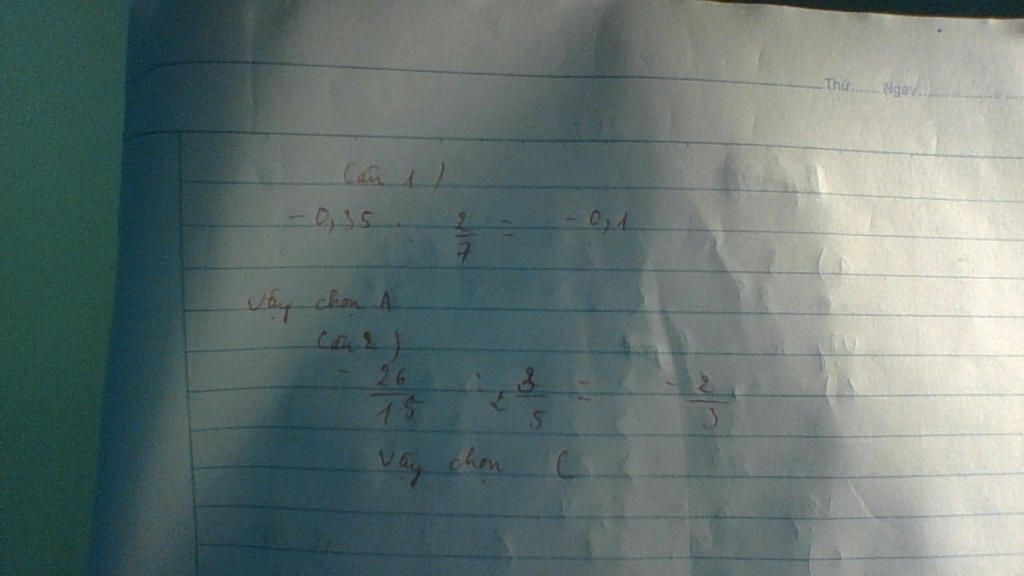 Thứ..... Ngày..............
Câu 1)
- 0,35 . 2/7 = - 0,1
Vậy chọn A
Câu 2)
- 26/15 : 2 3/5 = - 2/3
Vậy chọn C